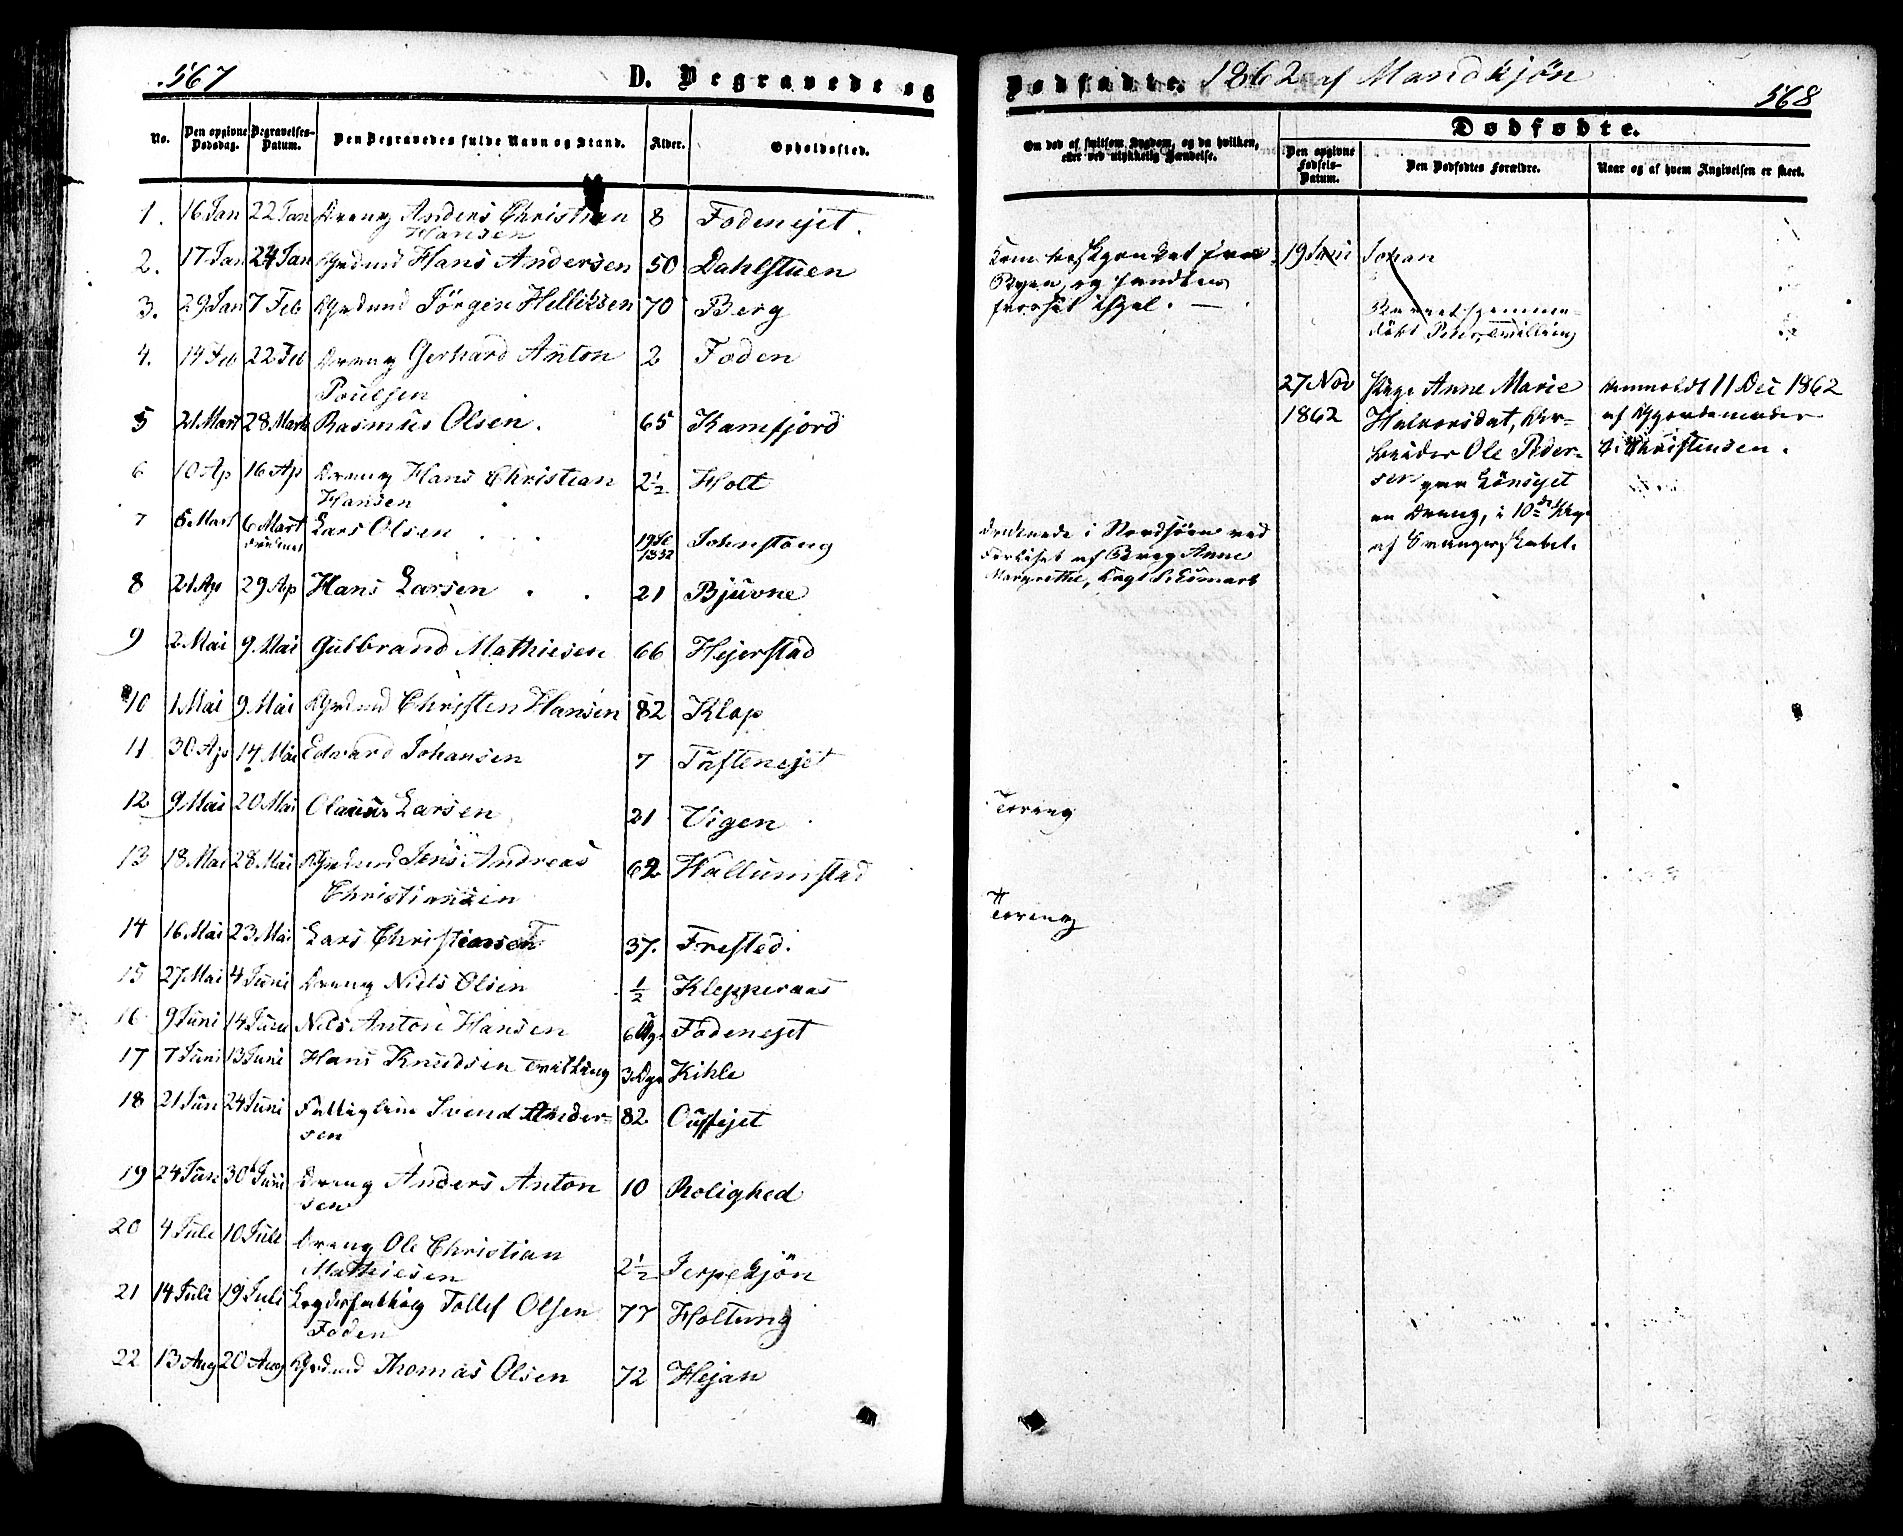 567
D. Begravede og
No.
Den opgivne Dødsdag.
Begravelses-Datum.
Den Begravedes fulde Navn og Stand.
Alder.
Opholdssted.
1. 16 Jan 22 Jan Dreng Anders Christian 8 Fodenejet.
Hansen
2. 17 Jan 24 Jan Grdmd Hans Andersen 50 Dahlstuen
3. 29 Jan 7 Feb Grdmd Jörgen Helliksen 70 Berg
4. 14 Feb 22 Feb Dreng Gerhard Anton 2 Foden
Poulsen
5 21 Mart 28 Mart Rasmus Olsen. 65 Kamfjord
6 10 Ap 16 Ap Dreng Hans Christian 2½ Holt
Hansen
7 6 Mart Lars Olsen
1832 Johnstang
8 21 Ap 29 Ap Hans Larsen 21 Bjuvne
9 2 Mai 9 Mai Gulbrand Mathiesen 66 Hejerstad
10 1 Mai 9 Mai Grdmd Christen Hansen 82 Klop
11 30 Ap 14 Mai Edvard Johansen 7 Tuftenejet
12 9 Mai 20 Mai Olaus Larsen 21 Vigen
13 18 Mai 28 Mai Grdmd Jens Andreas 62 Hallumstad
Christiansen
14 16 Mai 23 Mai Lars Christiansen 37. Frestad.
15 27 Mai 4 Juni Dreng Niels Olsen ½ Klepperaas
16 9 Juni 14 Juni Nils Anton Hansen 6 Fodenejet
17 7 Juni 13 Juni Hans Knudsen Tvilling 3 Dge Kihle
18 21 Jun 24 Juni Fattiglem Svend Ander- 82 Oustejet
sen
19 24 Jun 30 Juni Dreng Anders Anton 10 Rolighed
sen
20 4 Juli 10 Juli Dreng Ole Christian
Mathiesen 2½ Jerpekjön
21 14 Juli 19 Juli Tollef Olsen 77 Holtung
Foden
22 13 Aug 20 Aug Grdmd Thomas Olsen 72 Hejan
Dødfødte. 1862 af Mandkjön
568
Om død af smitsom Sygdom, og da hvilken,
eller ved ulykkelig Hændelse.
Dødfødte.
Den opgivne Fødsels-Datum.
Den Dødfødtes Forældre.
Naar og af hvem Angivelsen er skeet.
Kom beskjenket fra
Byen, og fandtes
frosset ihjel.
19 Juni Johan
Barnet hjemme-
döbt Peter, Tvilling
27 Nov
1862
Pige Anne Marie
Halvorsdat, Ar-
beider Ole Peder-
sen
en Dreng, i 10de
af Svangerskabet.
anmeldt 11 Dec 1862
af Gjordemoder
Christensen.
druknede i Nordsöen ved
Forliset af Brig Anne
Margrethe,
Tæring
Tæring